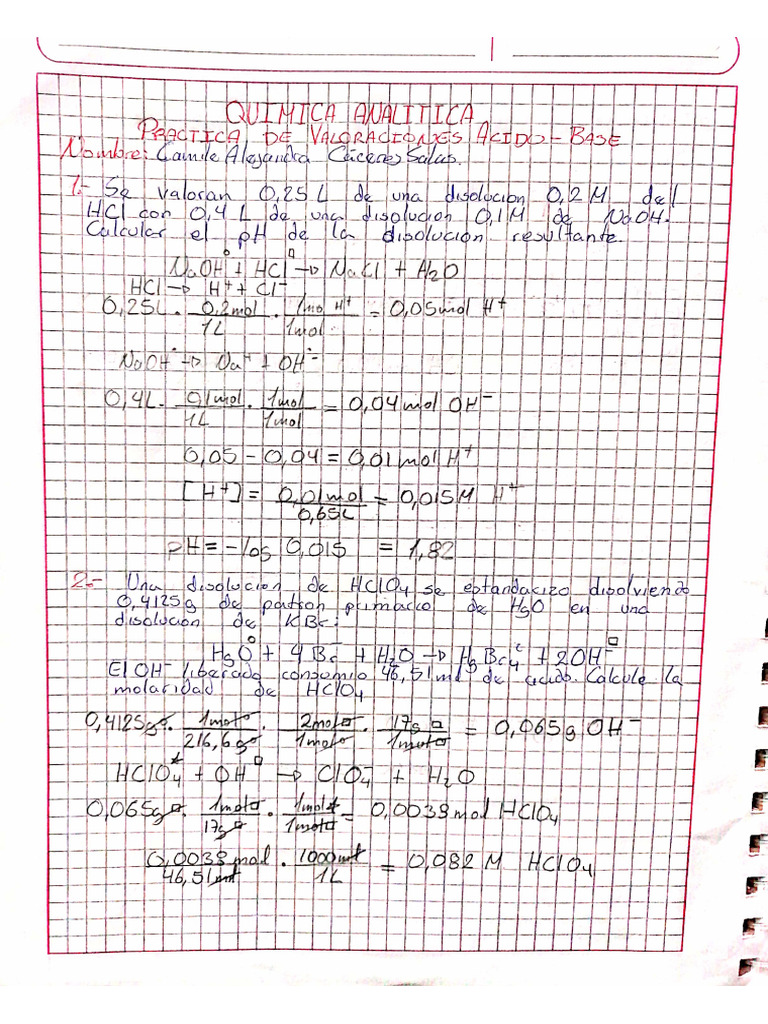 QUIMICA ANALITICA
PRACTICA DE VALORACIONES ACIDO-BASE
Nombre: Camile Alejandra Cáceres Salas.
1.- Se valoran 0,25 L de una disolución 0,2 M del
HCl con 0,4 L de una disolucion 0,1M de NaOH.
Calcular el pH de la disolución resultante.
NaOH + HCl → NaCl + H2O
HCl → H+ + Cl-
0,25L · 0,2mol/1L · 1mol H+/1mol = 0,05mol H+
NaOH → Na+ + OH-
0,4L · 0,1mol/1L · 1mol/1mol = 0,04 mol OH-
0,05 - 0,04 = 0,01 mol H+
[H+] = 0,01mol/0,65L = 0,015M H+
pH = -log 0,015 = 1,82
2.- Una disolucion de HClO4 se estandarizo disolviendo
0,4125g de patron primario de HgO en una
disolución de KBr:
HgO + 4Br- + H2O → HgBr4= + 2OH-
El OH- liberado consumio 46,51ml de acido. Calcule la
molaridad de HClO4
0,4125g○ · 1mol○/216,6g○ · 2mol□/1mol○ · 17g□/1mol□ = 0,065g OH-
HClO4* + OH-□ → ClO4- + H2O
0,065g□ · 1mol□/17g□ · 1mol*/1mol□ = 0,0038mol HClO4
0,0038mol/46,51ml · 1000ml/1L = 0,082 M HClO4